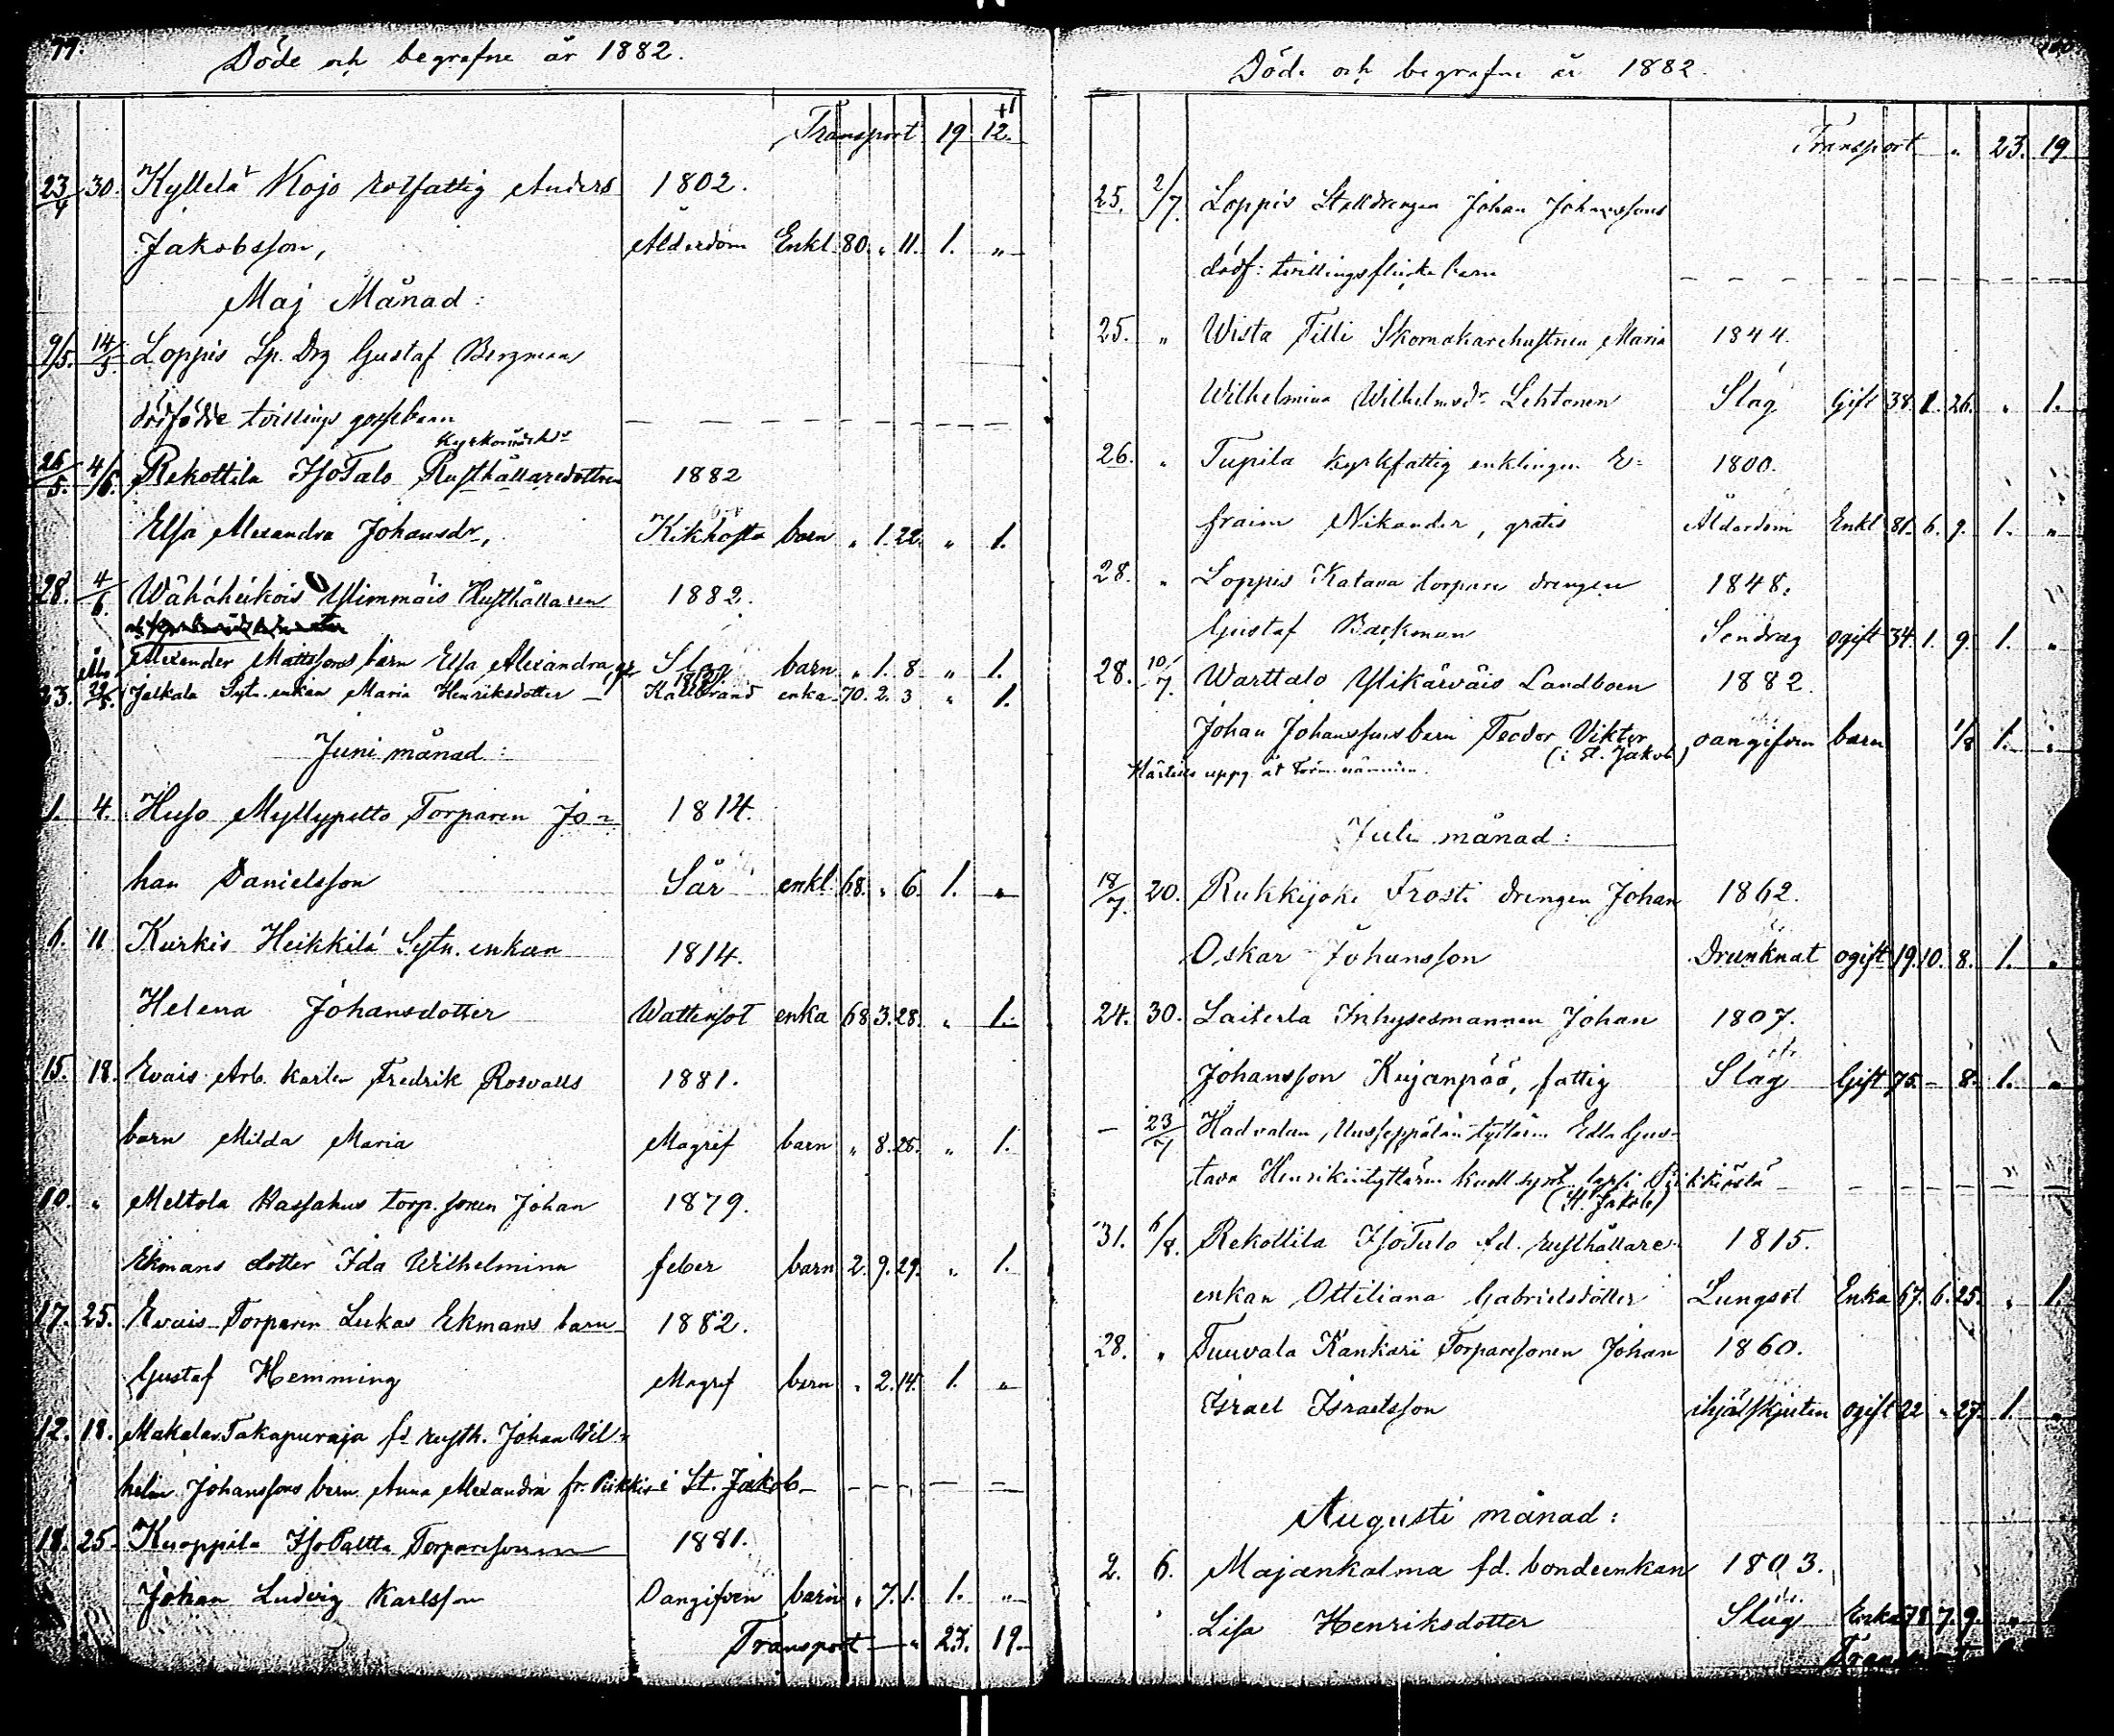 77.
Döde och begrafne år 1882.
Transport 19 12.
23/4 30. Kyllelä Kojo rotfattig Anders 1802.
Jakobsson, Ålderdom Enkl. 80. " 11. 1. "
Maj Månad:
9/5. 14/5. Loppis Sp. Drg Gustaf Bergmans
dödfödde tvillings gossebarn
26/5. 4/6. Rekottila IsoTalo Rusthållaredottren 1882
Elsa Alexandra Johansdr, Kikhosta barn " 1. 22. " 1.
28. 4/6. Wähäheikois Ylimmäis Rusthållaren 1882.
Alexander Mattssons barn Elsa Alexandra, Slag barn " 1. 8. " 1.
23. Jalkala Sytn. enkan Maria Henriksdotter Kallbrand enka 70. 2. 3. " 1.
Juni månad:
1. 4. Huso Myllypelto Torparen Jo= 1814.
han Danielsson Sår enkl. 68. " 6. 1. "
6. 11 Kurkis Heikkilä Sytn. enkan 1814.
Helena Johansdotter Wattensot enka 68 3. 28. " 1.
15. 18. Evais Arb. karlen Fredrik Rosvalls 1881.
barn Milda Maria Magref barn " 8. 26. " 1.
10. " Meltola Hassahus torp. sonen Johan 1879.
Ekmans dotter Ida Wilhelmina feber barn 2. 9. 29. " 1.
17. 25. Evais Torparen Lukas Ekmans barn 1882.
Gustaf Hemming Magref barn " 2. 14. 1. "
12. 18. Makela Takapuraja fd rusth. Johan Wil=
helm Johanssons barn Anna Alexandra fr. Piikkis i St. Jakob
18. 25. Kuoppila IsoPaltta Torparesonen 1881.
Johan Ludvig Karlsson Oangifven barn " 7. 1. 1. "
Transport " 23. 19.
Döde och begrafne år 1882.
Transport " 23. 19.
25. 2/7. Loppis Stalldrengen Johan Johanssons
dödf: tvillingsflicke barn
25. " Wista Tilli Skomakarehustrun Maria 1844.
Wilhelmina Wilhelmsdr Lehtonen Slag Gift 38. 1. 26. " 1.
26. " Tupila kyrkfattig enklingen E= 1800.
fraim Nikander, gratis Ålderdom Enkl 81. 6. 9. 1. "
28. " Loppis Katava torpare drengen 1848.
Gustaf Backman Lendrag ogift 34. 1. 9. 1. "
28. 10/7. Warttalo Ylikärväis Landboen 1882.
Johan Johanssons barn Teodor Viktor oangifven barn 1/8 1. "
(i St. Jakob)
Juli månad:
18/7. 20. Rukkijoki Trosti drengen Johan 1862.
Oskar Johansson Drunknat ogift 19. 10. 8. 1. "
24. 30. Laiterla Inhysesmannen Johan 1807.
Johansson Kujanpää, fattig Slag Gift 75. - 8. 1. "
— 23/7 Hadvalan Uusseppälän tyttären Edla Gus=
tava Henrikintyttären kuoll. synt. lapsi Piikkiöstä
(St. Jakob)
31. 6/8. Rekottila IsoTalo fd. rusthållare 1815.
enkan Ottiliana Gabrielsdotter Lungsot Enka 67. 6. 25. " 1.
28. " Tuuvala Kankari Torparesonen Johan 1860.
Israel Israelsson ihjälskjuten ogift 22 " 27. 1. "
Augusti månad:
2. 6. Majankalma fd. bondeenkan 1803.
Lisa Henriksdotter Slag Enka 78. 7. 9. "
Transport